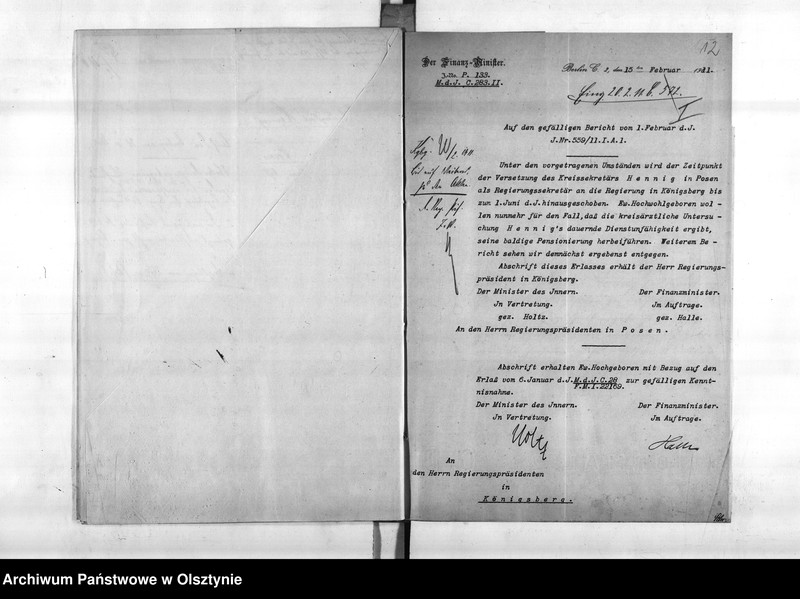 12
Der Finanz-Minister.
J.-No. P. 133.
M.d.J. C.283.II.
Berlin C. 2, den 15 ten Februar 1911.
Eing 20.2.11.
I
Auf den gefälligen Bericht vom 1.Februar d.J.
J.Nr.559/11.I.A.1.
Unter den vorgetragenen Umständen wird der Zeitpunkt
der Versetzung des Kreissekretärs H e n n i g in Posen
als Regierungssekretär an die Regierung in Königsberg bis
zum 1.Juni d.J.hinausgeschoben. Ew.Hochwohlgeboren wol -
len nunmehr für den Fall,daß die kreisärztliche Untersu -
chung H e n n i g's dauernde Dienstunfähigkeit ergibt,
seine baldige Pensionierung herbeiführen. Weiterem Be -
richt sehen wir demnächst ergebenst entgegen.
Abschrift dieses Erlasses erhält der Herr Regierungs-
präsident in Königsberg.
Der Minister des Jnnern. Der Finanzminister.
Jn Vertretung. Jm Auftrage.
gez. Holtz. gez. Halle.
An den Herrn Regierungspräsidenten in P o s e n .
Abschrift erhalten Ew.Hochgeboren mit Bezug auf den
Erlaß vom 6.Januar d.J. M.d.J.C.28 zur gefälligen Kennt-
F.M.I.22169.
nisnahme.
Der Minister des Jnnern. Der Finanzminister.
Jn Vertretung. Jm Auftrage.
Holtz Halle
An
den Herrn Regierungspräsidenten
in
K ö n i g s b e r g .
Archiwum Państwowe w Olsztynie